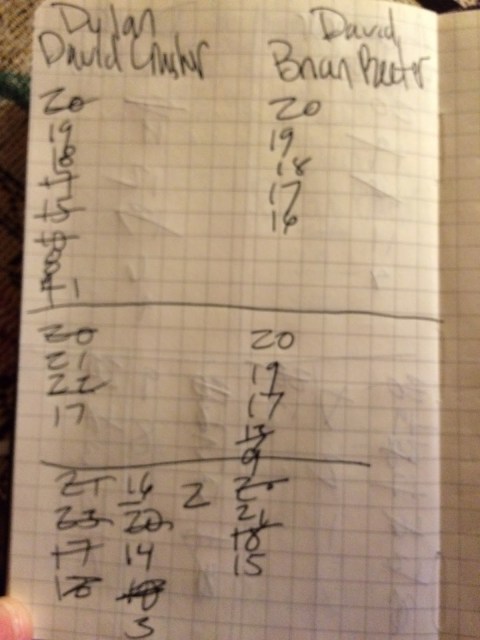 Dylan David
David Brian Baxter
20 20
19 19
18 18
17 17
15 16
8
1
20 20
21 19
22 17
17 13
9
21 16 2 20
23 20 21
17 14 18
16 18 15
3